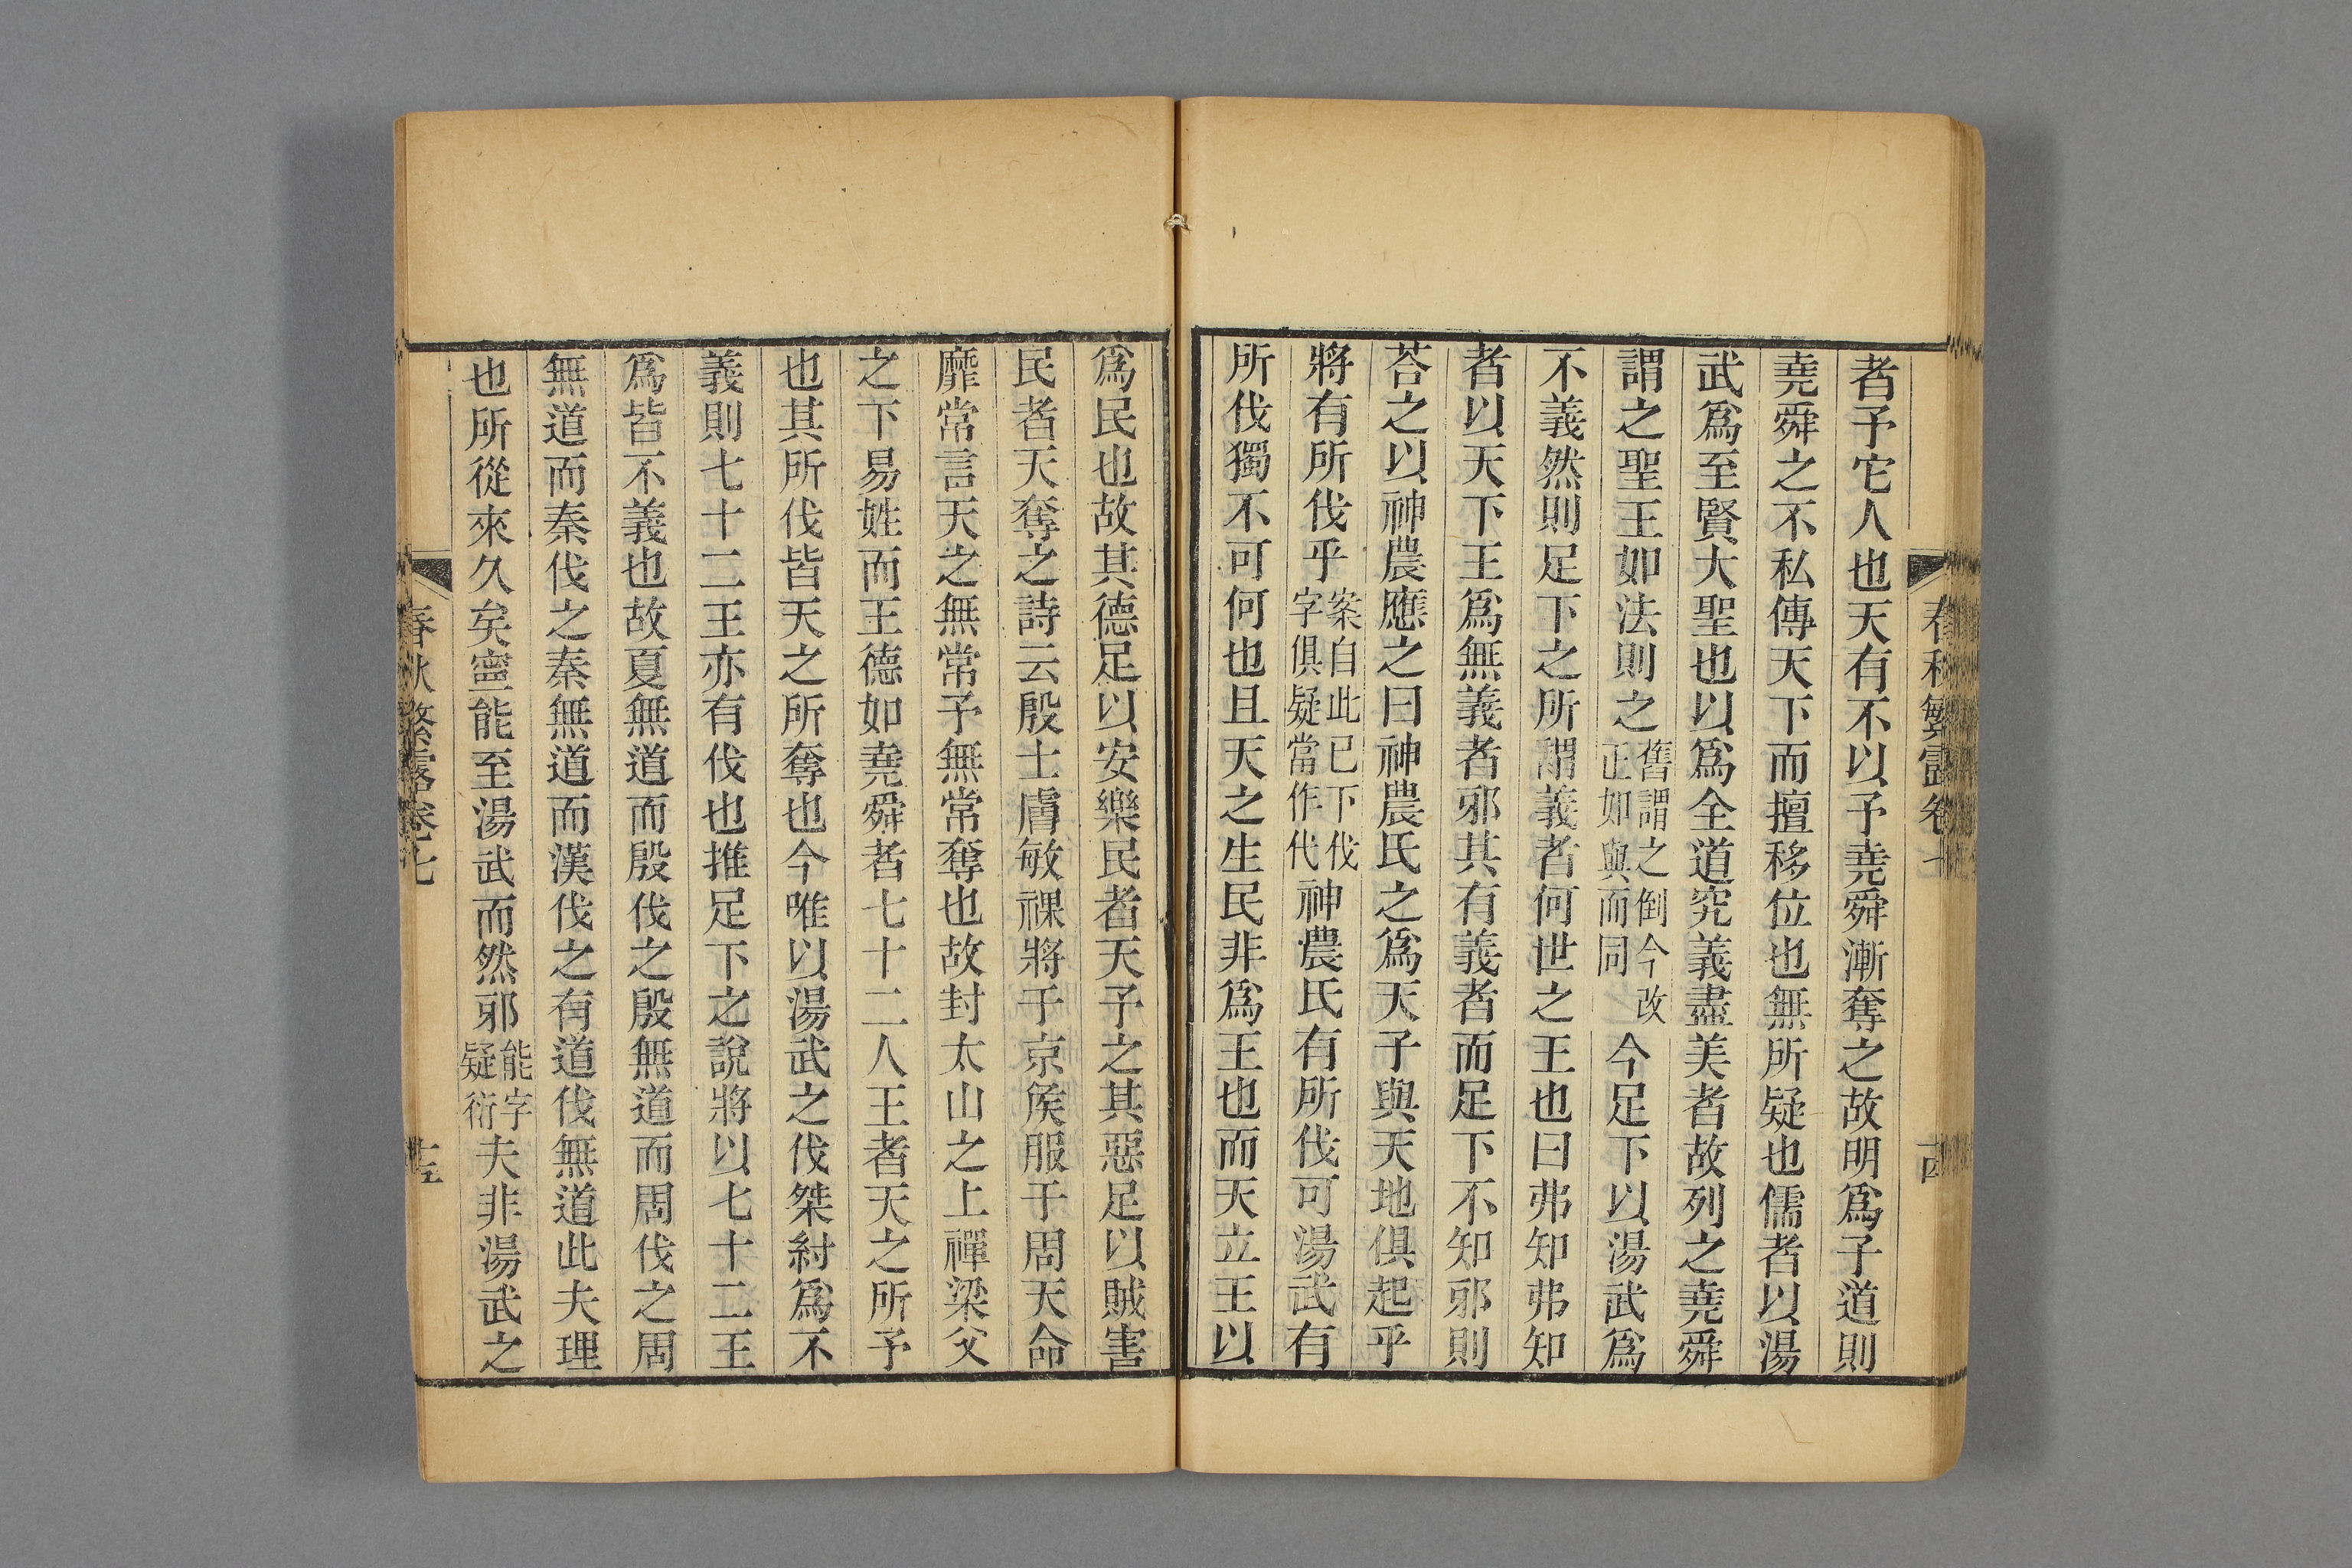 春秋繁露卷七
者予它人也天有不以予堯舜漸奪之故明爲子道則
堯舜之不私傳天下而擅移位也無所疑也儒者以湯
武爲至賢大聖也以爲全道究義盡美者故列之堯舜
謂之聖王如法則之舊謂之倒今改正如與而同今足下以湯武爲
不義然則足下之所謂義者何世之王也曰弗知弗知
者以天下王爲無義者邪其有義者而足下不知邪則
荅之以神農應之曰神農氏之爲天子與天地俱起乎
將有所伐乎案自此已下伐字俱疑當作代神農氏有所伐可湯武有
所伐獨不可何也且天之生民非爲王也而天立王以
爲民也故其德足以安樂民者天予之其惡足以賊害
民者天奪之詩云殷士膚敏祼將于京矦服于周天命
靡常言天之無常予無常奪也故封太山之上禪梁父
之下易姓而王德如堯舜者七十二人王者天之所予
也其所伐皆天之所奪也今唯以湯武之伐桀紂爲不
義則七十二王亦有伐也推足下之說將以七十二王
爲皆不義也故夏無道而殷伐之殷無道而周伐之周
無道而秦伐之秦無道而漢伐之有道伐無道此夫理
也所從來久矣寍能至湯武而然邪能字疑衍夫非湯武之
春秋繁露卷七
十五